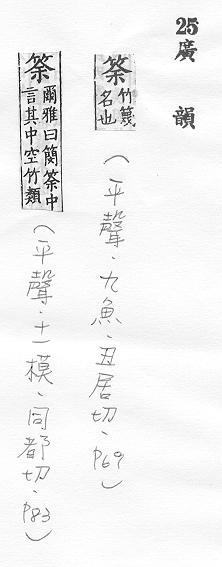 25廣韻
筡竹篾名也
（平聲、九魚、丑居切、P69）
筡爾雅曰簢筡中言其中空竹類
（平聲、十一模、同都切、P83）